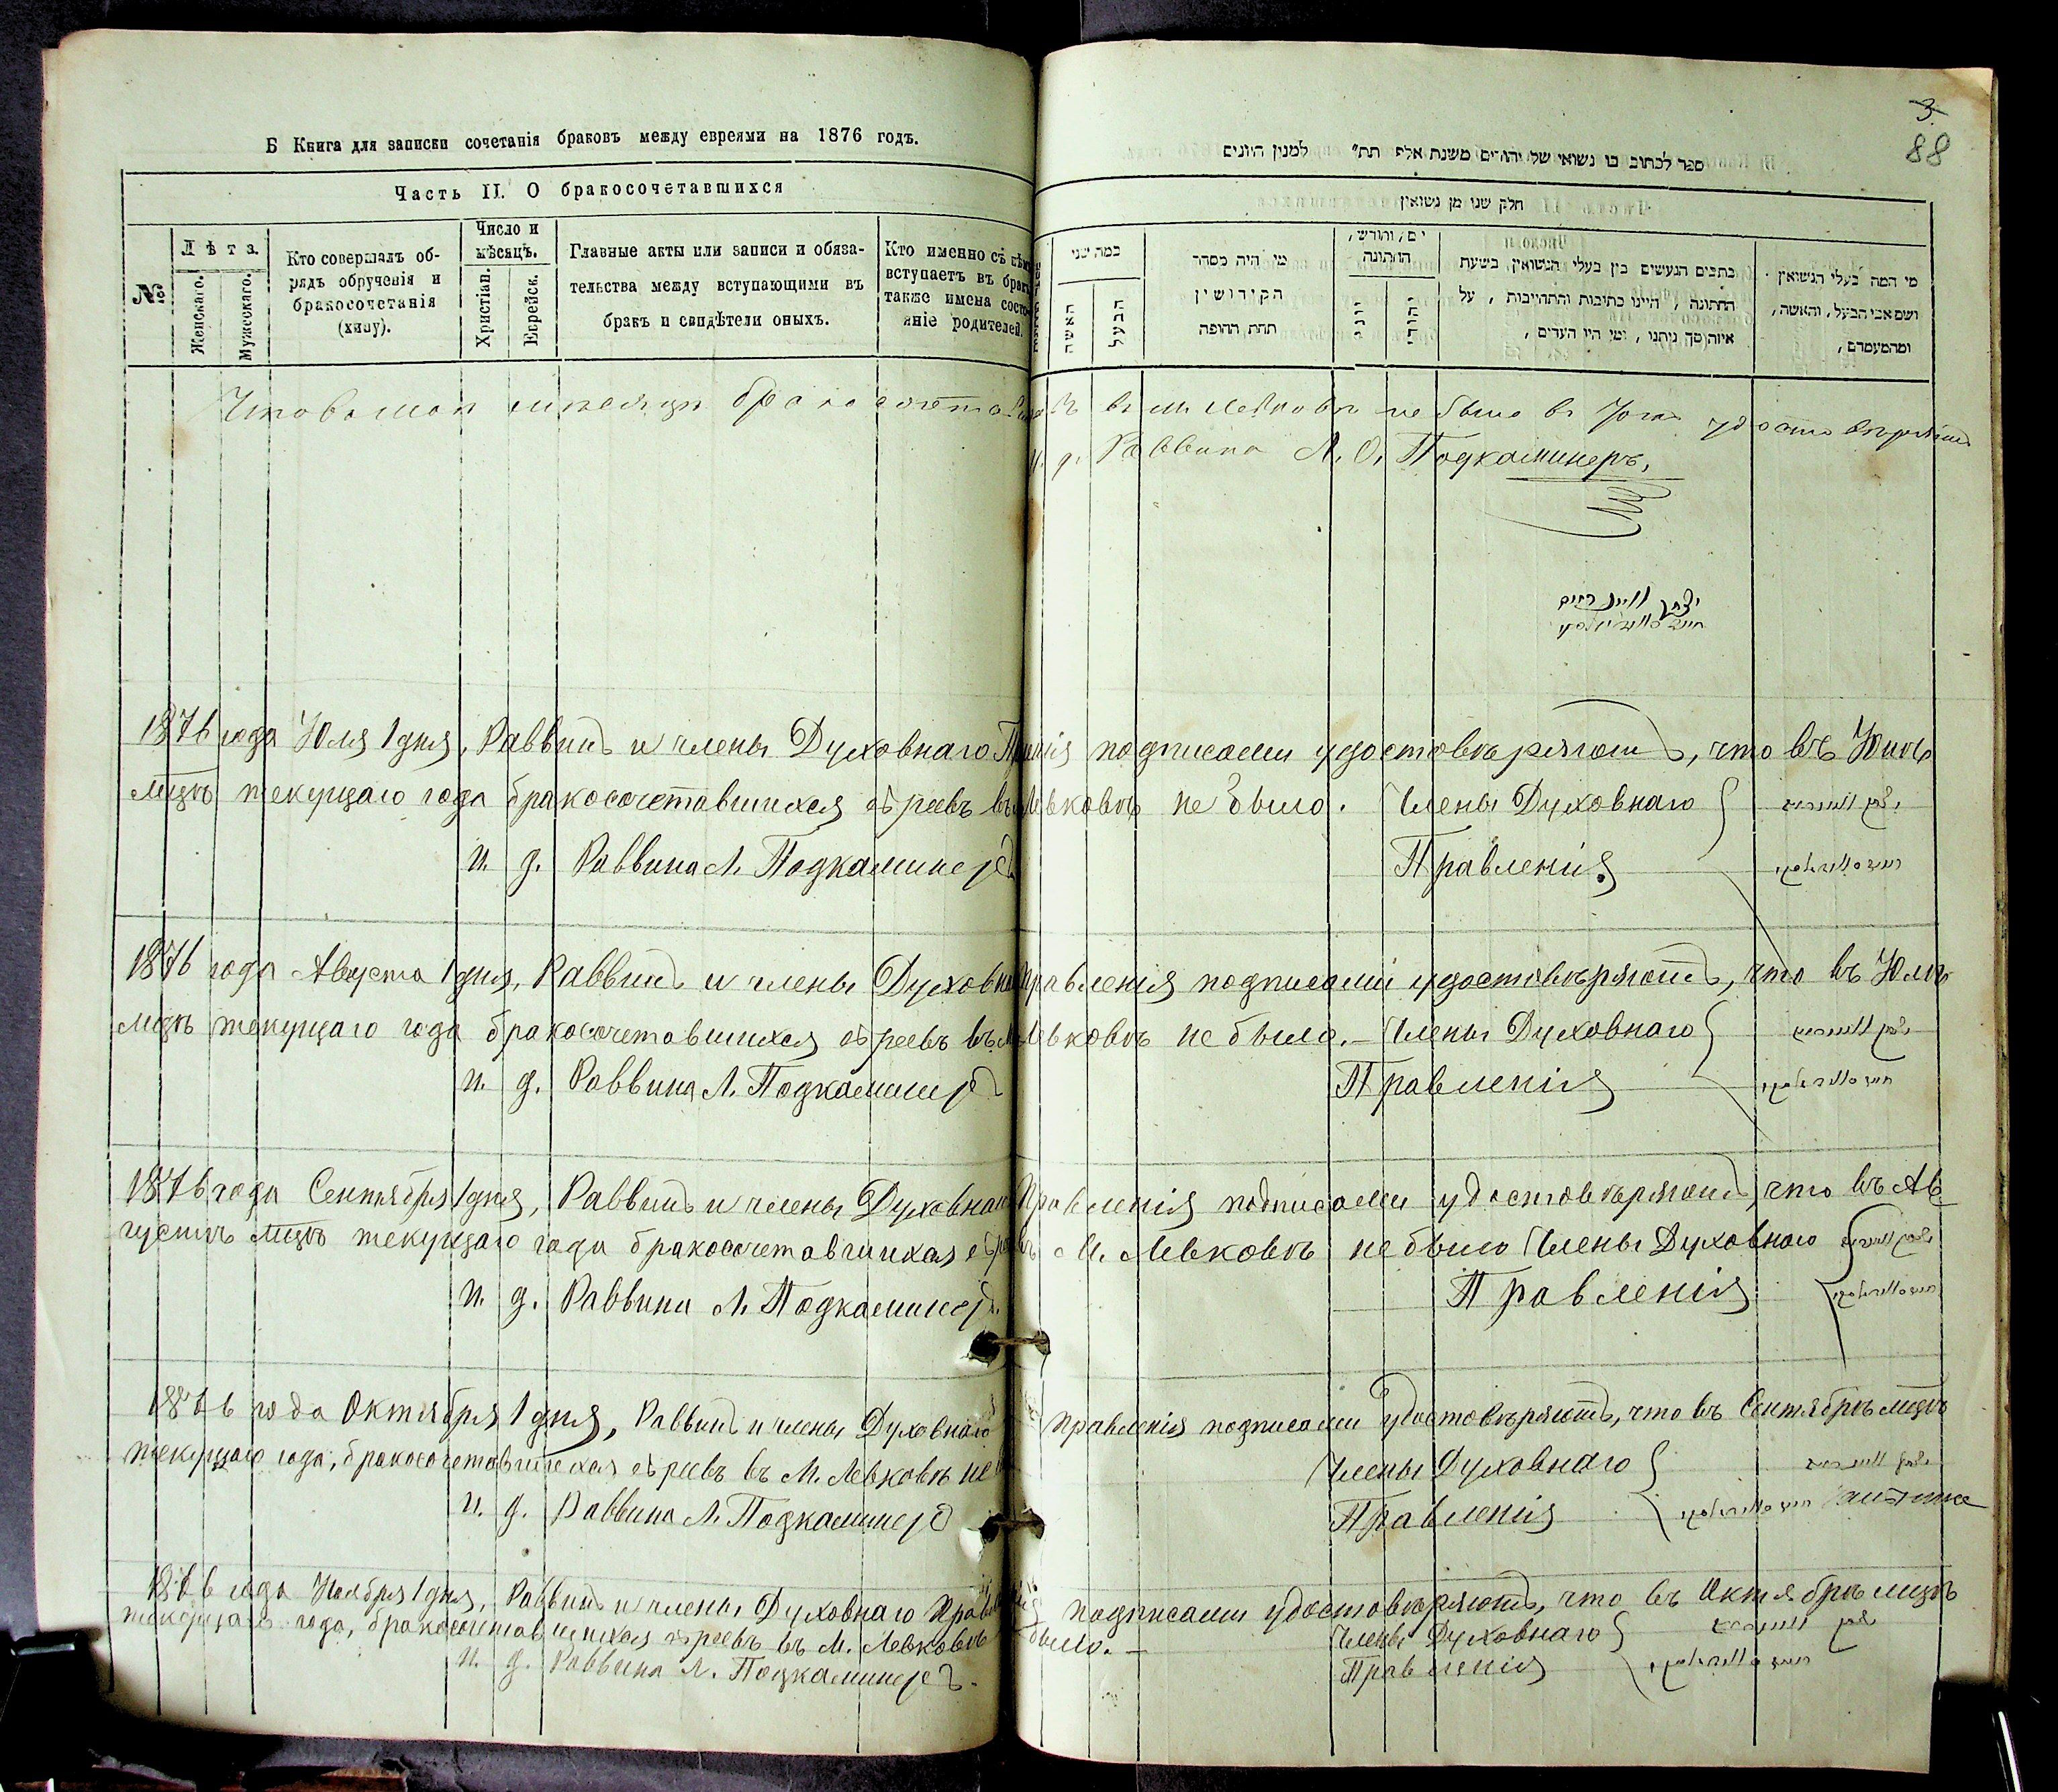 3.
88
Б Книга для записки сочетанія браковъ между евреями на 1876 годъ.
ספר לכתוב בו נשואי של יהודים משנת אלף תת״ למנין היונים
Часть II. О бракосочетавшихся
חלק שני מן נשואין
№
Лѣта.
Женскаго.
Мужескаго.
Кто совершалъ об-
рядъ обрученія и
бракосочетанія
(хипу).
Число и
мѣсяцъ.
Христіан.
Еврейск.
Главные акты или записи и обяза-
тельства между вступающими въ
бракъ и свидѣтели оныхъ.
Кто именно съ кѣмъ
вступаетъ въ бракъ
также имена состо-
яніе родителей.
במה שני
האשה
הבעל
מי היה מסדר
הקידושין
תחת החופה
יום, וחודש,
החתונה
יוני
יהודי
כתבים הנעשים בין בעלי הנשואין בשעת
החתונה, היינו כתיבות והתחייבות, על
איזה סך ניתנו, ומי היו העדים,
מי המה בעלי הנשואין
ושם אבי הבעל, והאשה,
ומהמעמדם,
Что въ мѣсяцѣ бракосочетав въ м. Левковѣ не было въ томъ удостовѣряю
и. д. Раввина Л. О. Подкаминеръ.
1876 года Юля 1 дня, Раввинъ и члены Духовнаго Правленія подписами удостовѣряютъ, что въ Юнѣ
мцѣ текущаго года бракосочетавшихся евреевъ въ м. Левковѣ не было. Члены Духовнаго
и. д. Раввина Л. Подкаминеръ Правленія
1876 года Августа 1 дня, Раввинъ и члены Духовнаго Правленія подписами удостовѣряютъ, что въ Юлѣ
мцѣ текущаго года бракосочетавшихся евреевъ въ м. Левковѣ не было. – Члены Духовнаго
и. д. Раввина Л. Подкаминеръ Правленія
1876 года Сентября 1 дня, Раввинъ и члены Духовнаго Правленія подписами удостовѣряютъ, что въ Ав
густѣ мцѣ текущаго года бракосочетавшихся евреевъ въ М. Левковѣ не было Члены Духовнаго
и. д. Раввина Л. Подкаминеръ. Правленія
1876 года Октября 1 дня, Раввинъ и члены Духовнаго Правленія подписами удостовѣряютъ, что въ Сентябрѣ мцѣ
текущаго года, бракосочетавшихся евреевъ въ М. Левковѣ не Члены Духовнаго
и. д. Раввина Л. Подкаминеръ Правленія
1876 года Ноября 1 дня, Раввинъ и члены Духовнаго Правленія подписами удостовѣряютъ, что въ Октябрѣ мцѣ
текущаго года, бракосочетавшихся евреевъ въ М. Левковѣ было. – Члены Духовнаго
и. д. Раввина Л. Подкаминеръ. Правленія